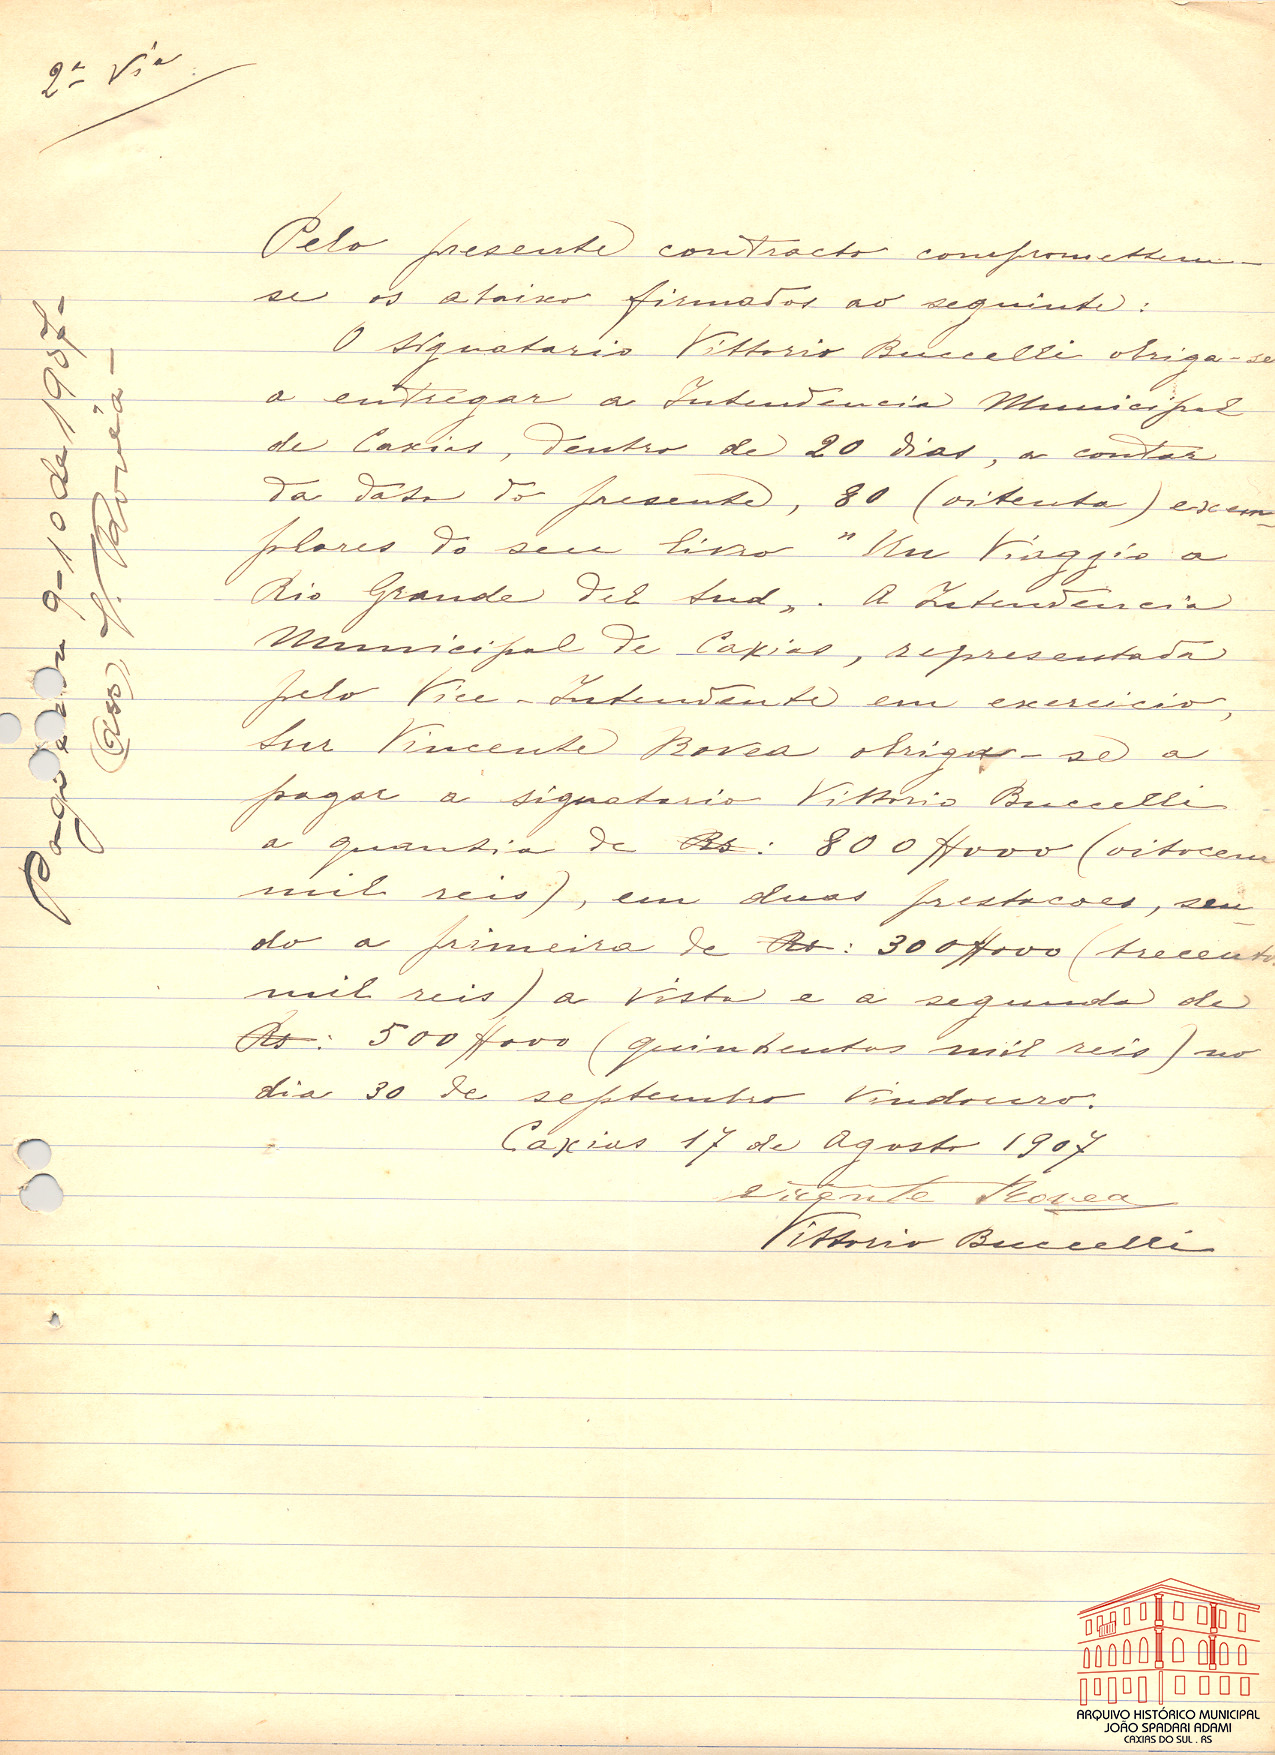 2ª Via
Pelo presente contracto compromettem-
se os abaixo firmados ao seguinte:
O signatario Vittorio Buccelli obriga-se
a entregar a Intendencia Municipal
de Caxias, dentro de 20 dias, a contar
da data do presente, 80 (oitenta) exem-
plares do seu livro "Un Viaggio a
Rio Grande del Sud„. A Intendencia
Municipal de Caxias, representada
pelo Vice-Intendente em exercicio,
Snr Vincente Rovea obriga-se a
pagar a signatario Vittorio Buccelli
a quantia de Rs: 800$000 (oitocen
mil reis), em duas prestacoes, sen
do a primeira de Rs: 300$000 (trecentos
mil reis) a vista e a segunda de
Rs: 500$000 (quinhentos mil reis) no
dia 30 de septembro vindouro.
Caxias 17 de Agosto 1907
Vicente Rovea
Vittorio Buccelli
9-10 de 1907-
(ass) V. Rovêa-
ARQUIVO HISTÓRICO MUNICIPAL
JOÃO SPADARI ADAMI
CAXIAS DO SUL . RS